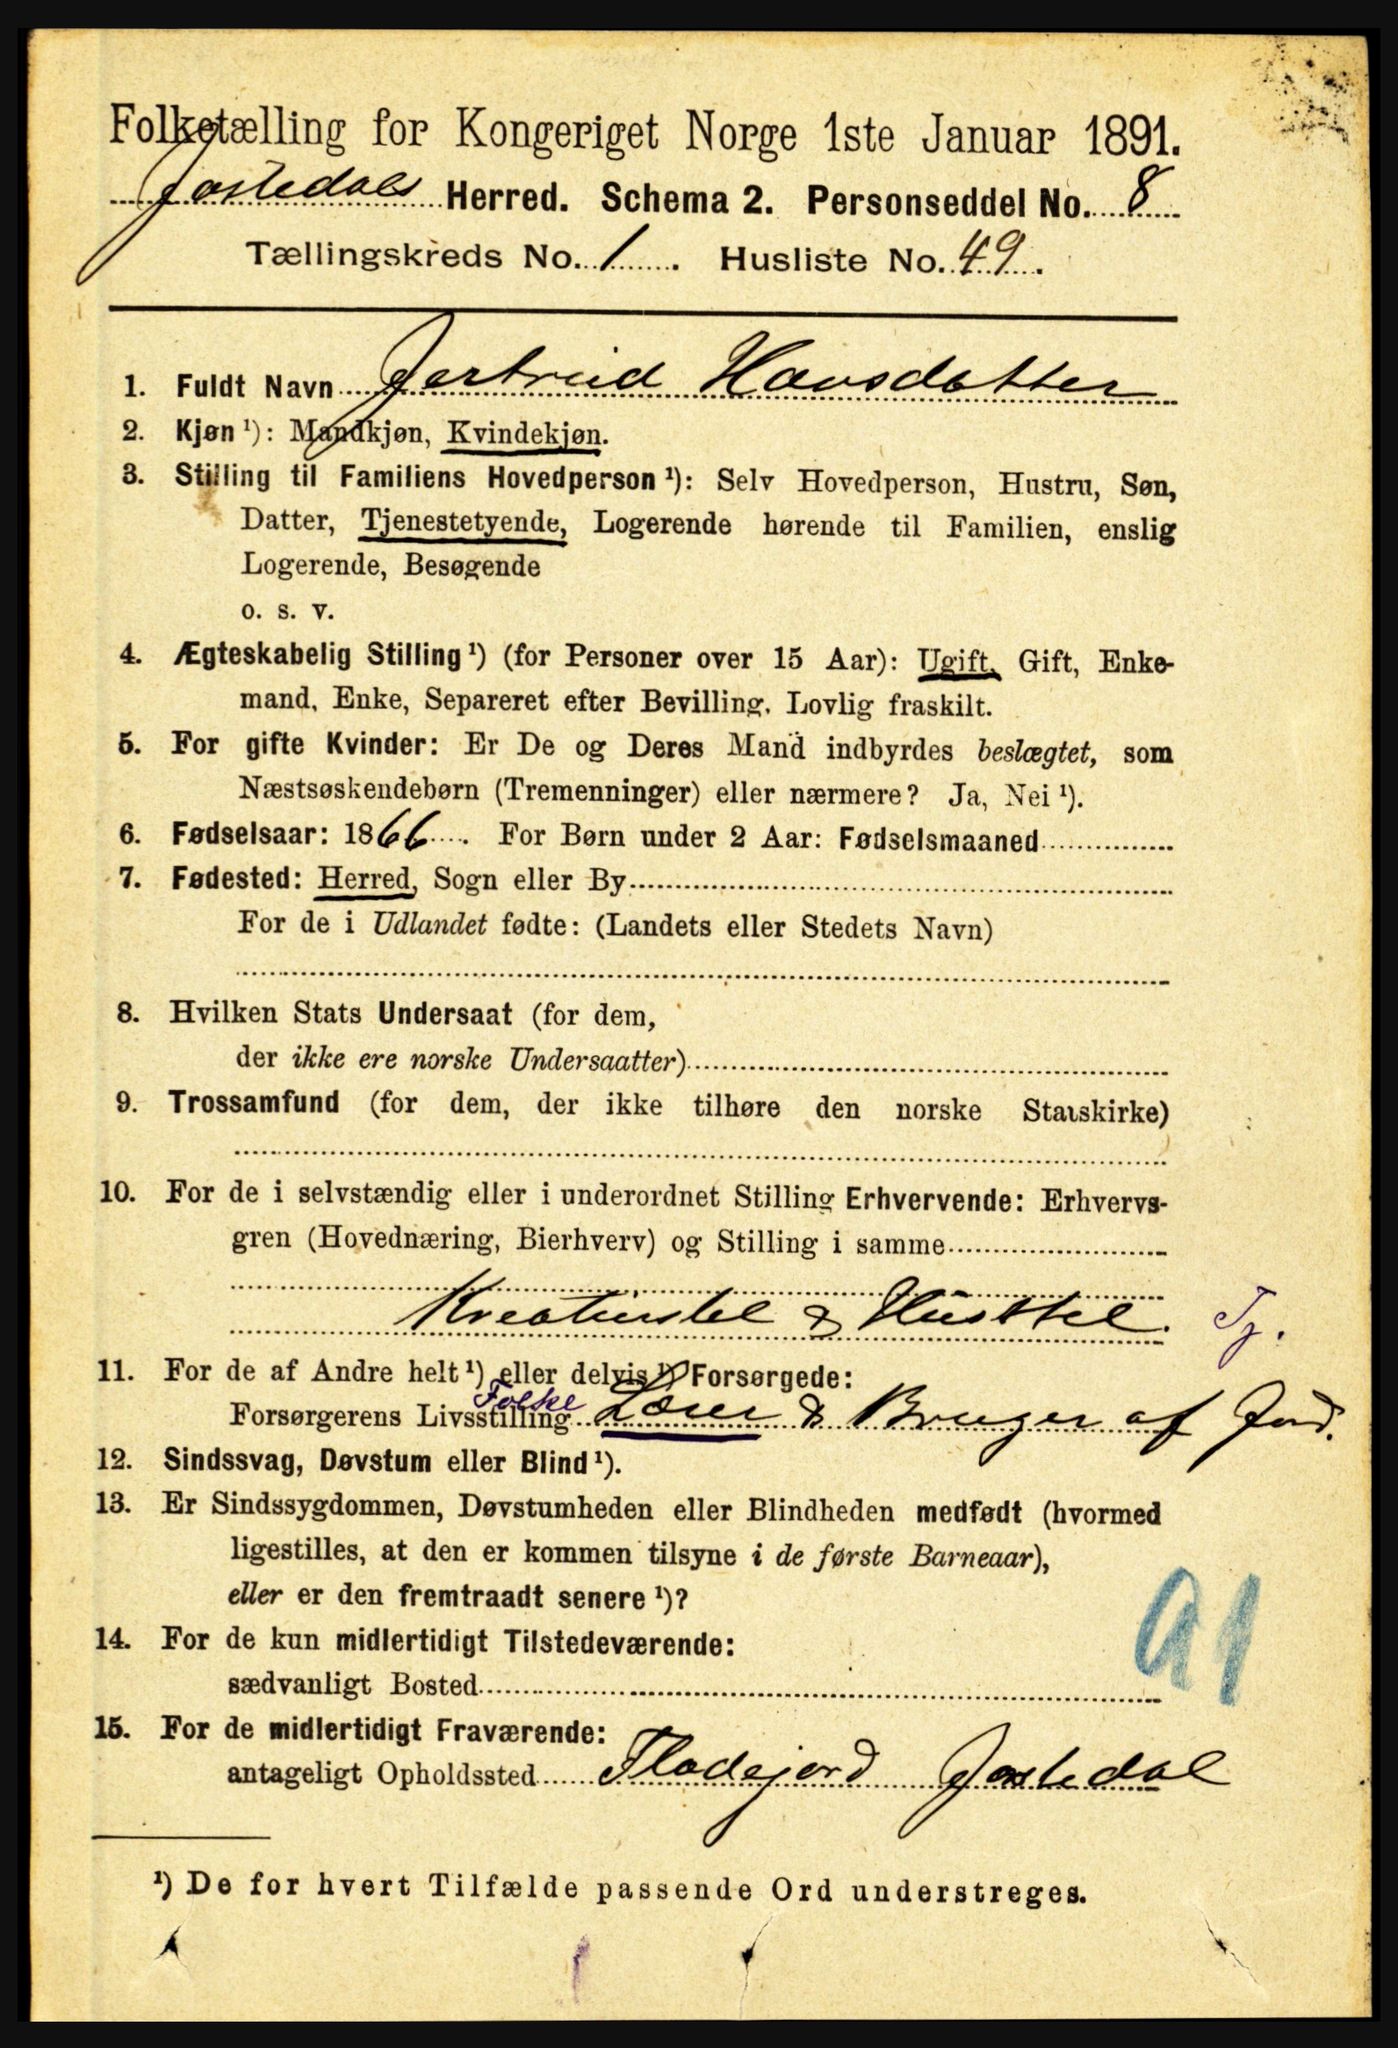 Folketælling for Kongeriget Norge 1ste Januar 1891.
Jostedals Herred. Schema 2. Personseddel No. 8
Tællingskreds No. 1. Husliste No. 49.
1. Fuldt Navn Gertrud Hansdatter
2. Kjøn ¹): Mandkjøn, Kvindekjøn.
3. Stilling til Familiens Hovedperson ¹): Selv Hovedperson, Hustru, Søn,
Datter, Tjenestetyende, Logerende hørende til Familien, enslig
Logerende, Besøgende
o. s. v.
4. Ægteskabelig Stilling ¹) (for Personer over 15 Aar): Ugift, Gift, Enke-
mand, Enke, Separeret efter Bevilling, Lovlig fraskilt.
5. For gifte Kvinder: Er De og Deres Mand indbyrdes beslægtet, som
Næstsøskendebørn (Tremenninger) eller nærmere? Ja, Nei ¹).
6. Fødselsaar: 1866. For Børn under 2 Aar: Fødselsmaaned
7. Fødested: Herred, Sogn eller By
For de i Udlandet fødte: (Landets eller Stedets Navn)
8. Hvilken Stats Undersaat (for dem,
der ikke ere norske Undersaatter)
9. Trossamfund (for dem, der ikke tilhøre den norske Statskirke)
10. For de i selvstændig eller i underordnet Stilling Erhvervende: Erhvervs-
gren (Hovednæring, Bierhverv) og Stilling i samme
Kreaturstel & Husstel. Tj.
11. For de af Andre helt ¹) eller delvis ¹) Forsørgede:
Folke
Forsørgerens Livsstilling Lærer & Bruger af Jord.
12. Sindssvag, Døvstum eller Blind ¹).
13. Er Sindssygdommen, Døvstumheden eller Blindheden medfødt (hvormed
ligestilles, at den er kommen tilsyne i de første Barneaar),
eller er den fremtraadt senere ¹)?
14. For de kun midlertidigt Tilstedeværende:
sædvanligt Bosted
15. For de midlertidigt Fraværende:
antageligt Opholdssted Fladejord Jostedal
¹) De for hvert Tilfælde passende Ord understreges.